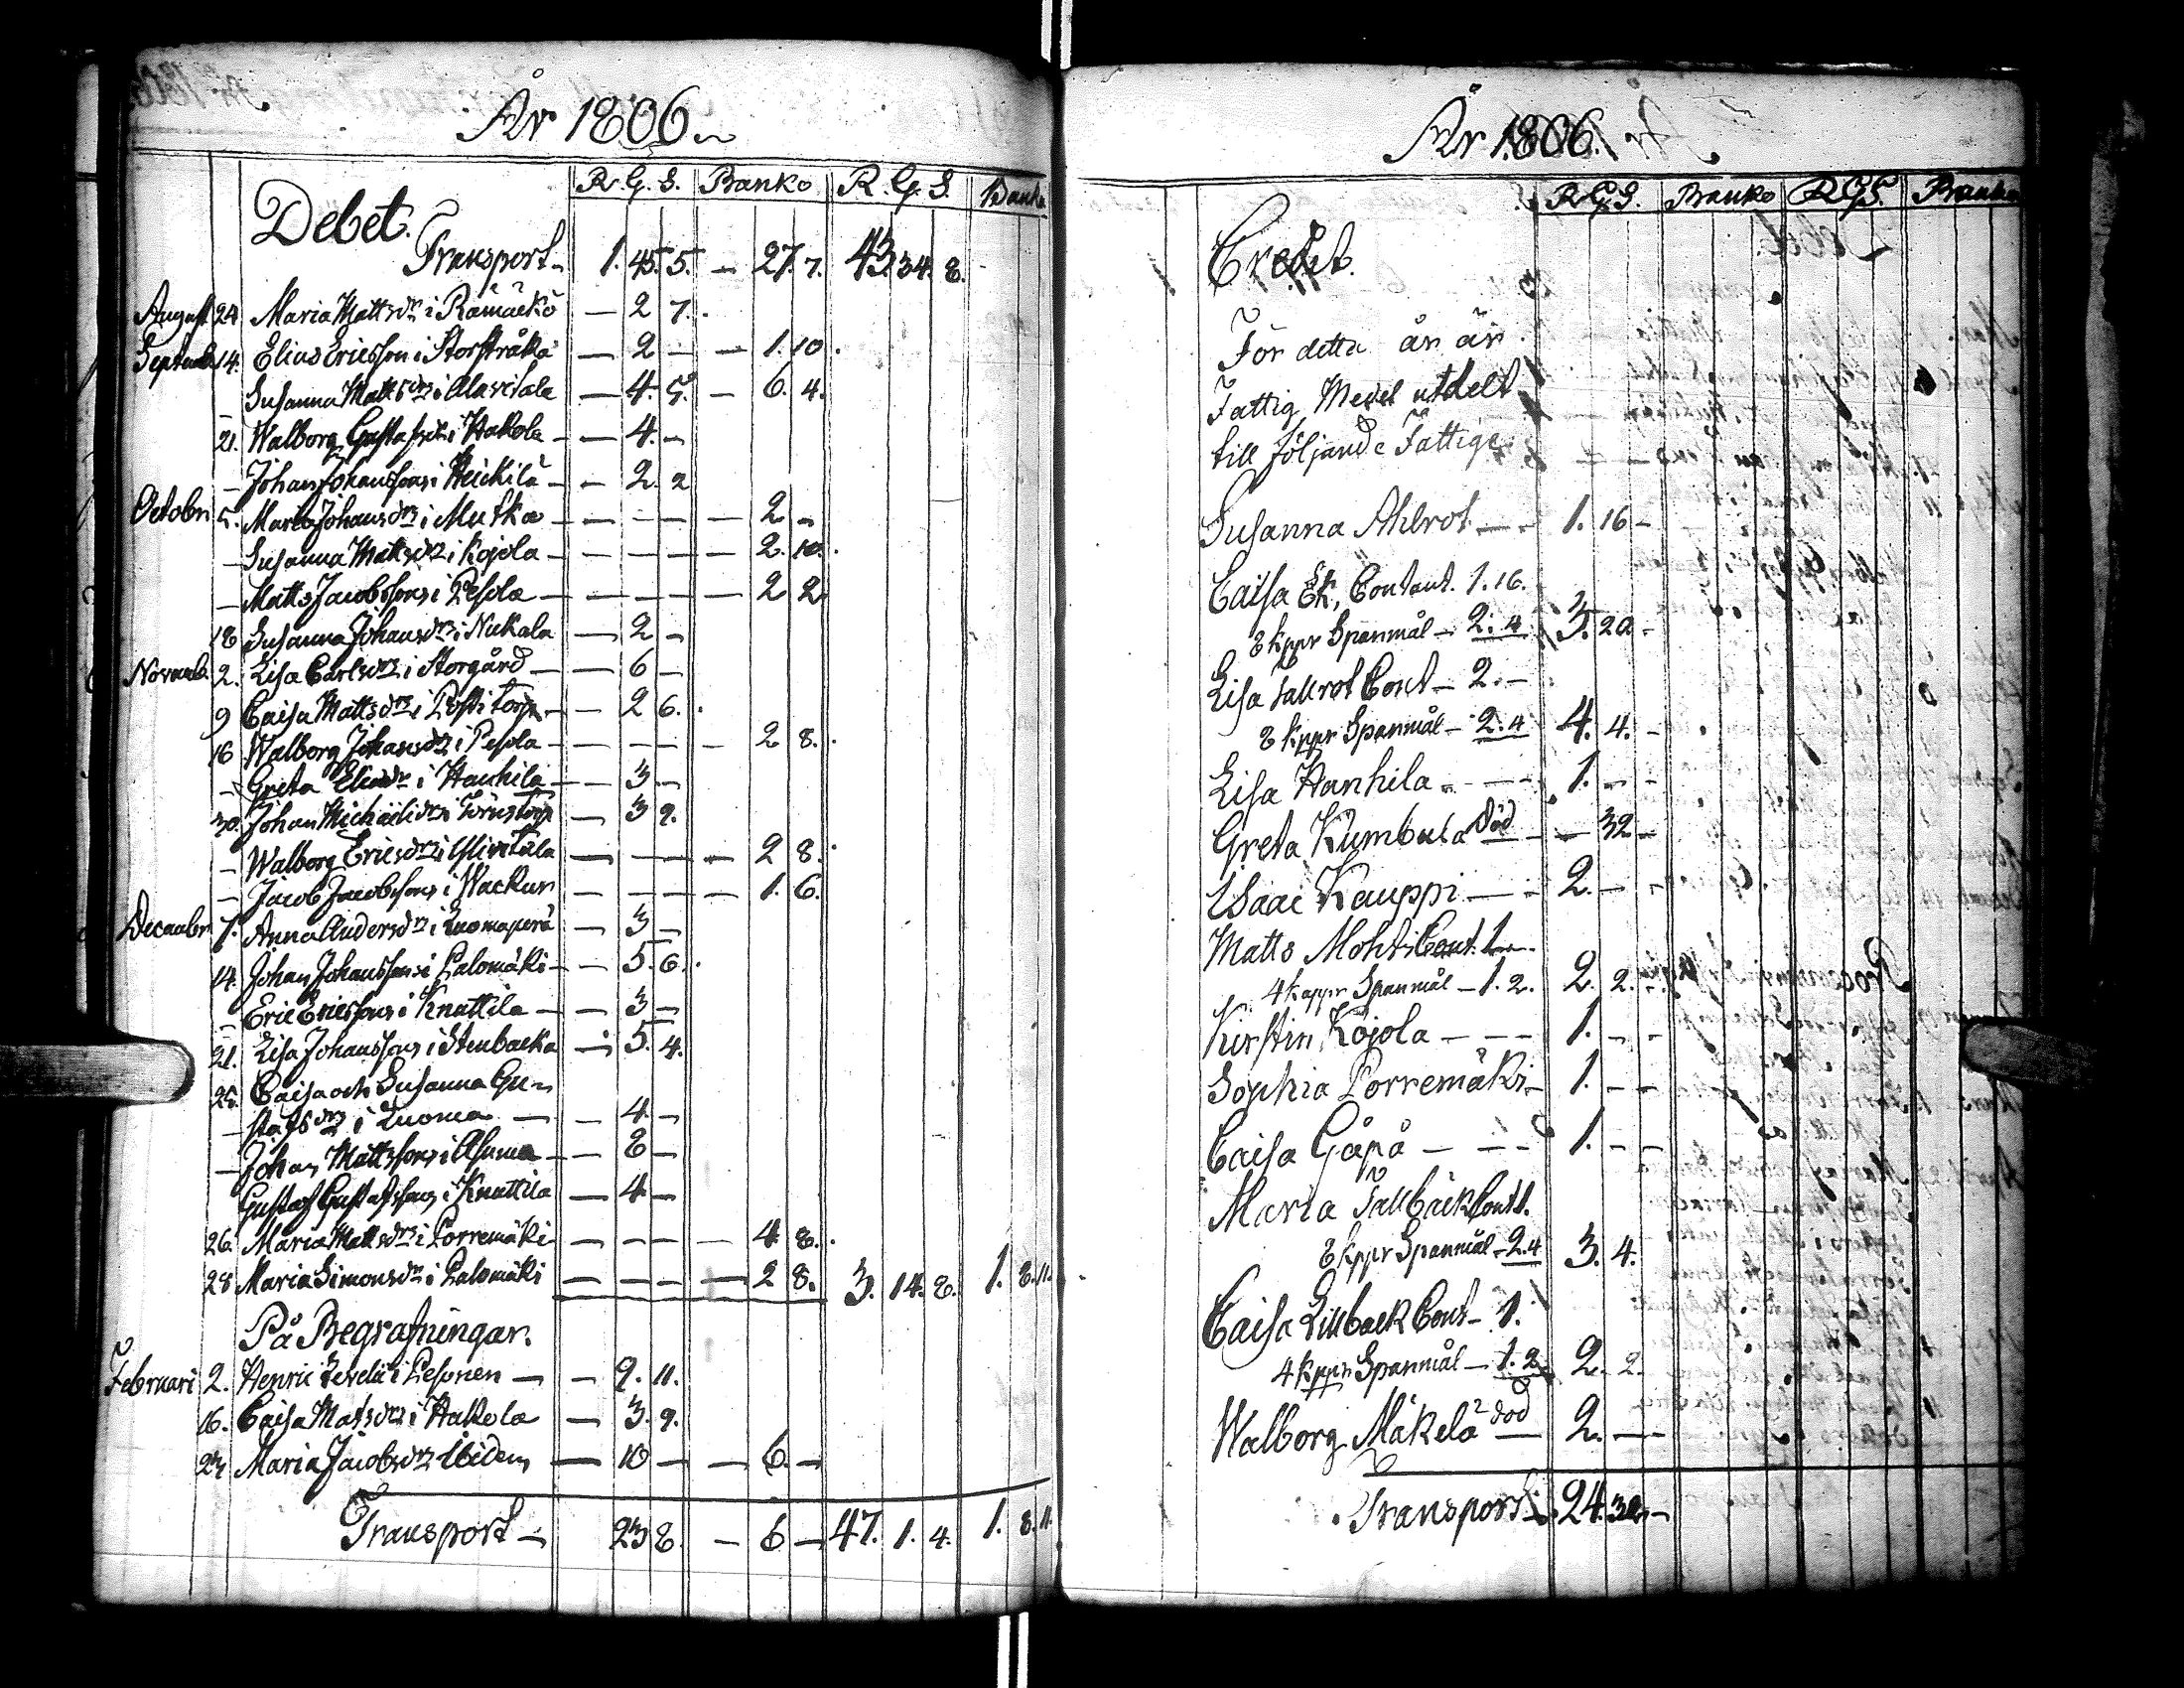 År 1806
Debet.
R. G. S. Banko R. G. S. Banko
Transport 1. 45. 5. — 27. 7. 43. 34. 8.
August 24 Maria Mattsdr i Rämäckö — 2 7.
Septemb 14. Elias Ericsson i Storstråka — 2 — — 1. 10.
Susanna Mattsdr i Alavitala — 4. 5. — 6. 4.
21. Walborg Gustafsdr i Hakola — 4. —
— Johan Johansson i Heickilä — 2. 2
Octobr 5. Maria Johansdr i Mutka — — — — 2 —
— Susanna Mattsdr i Kojola — — — — 2. 10.
— Matts Jacobsson i Pesola — — — — 2 2
18 Susanna Johansdr i Niekala — 2 —
Novemb. 2. Lisa Carlsdr i Storgård — 6 —
9 Caisa Mattsdr i Posti torp — 2 6.
16 Walborg Johansdr i Pesola — — — — 2 8.
— Greta Eliadr i Hanhila — 3 —
30. Johan Michaili — 3 9.
— Walborg Ericsdr i — — — — 2 8.
— Jacob Jacobsson i Wackur — — — — 1. 6.
Decembr 7. Anna Andersdr i Luomaperä — 3 —
14. Johan Johansson i Palomäki — 5. 6.
— Eric Ericsson i Knuttila — 3 —
21. Lisa Johansson i Stenbacka — 5. 4.
25. Caisa och Susanna Gu-
stafsdr i Luoma — 4 —
— Johan Mattsson i Asuma — 8 —
Gustaf Gustafsson i Knuttila — 4 —
26. Maria Mattsdr i Porremäki — — — — 4 8.
28 Maria Simonsdr i Palomäki — — — — 2 8. 3. 14. 8. 1. 8. 11.
På Begrafningar.
Februari 2. Henric Levelä i Pesonen — 9. 11.
16. Caisa Matsdr i Hakola — 3. 9.
23 Maria Jacobsdr — 10 — — 6. —
Transport — 23 8. — 6 — 47. 1. 4. 1. 8. 11.
År 1806.
Credit.
R. G. S. Banko R G S. Banko
För detta år är
Fattig Medel utdelt
till följande Fattige
Susanna Ahlrot — 1. 16 —
Caisa Ek, Contant. 1. 16.
8 kppr Spanmål — 2. 4 3. 20 —
Lisa Tallrot Cont — 2. —
8 kppr Spanmål — 2. 4 4. 4. —
Lisa Hanhila — — 1. — —
Greta Kumbula död — — 32 —
Isaac Kauppi — 2. — —
Matts Mohti Cont. 1 —
4 kappr Spanmål — 1. 2. 2. 2. —
Kirstin Kojola — — — 1. — —
Sophia Porremäki — 1. — —
Caisa Gåpå — — — 1. — —
Maria Tallbäck Cont 1.
8 kppr Spanmål — 2. 4 3. 4.
Caisa Lillback Cont — 1.
4 kppr Spanmål — 1. 2 2. 2.
Walborg Mäkelä död — 2. — —
Transport — 24. 32 —